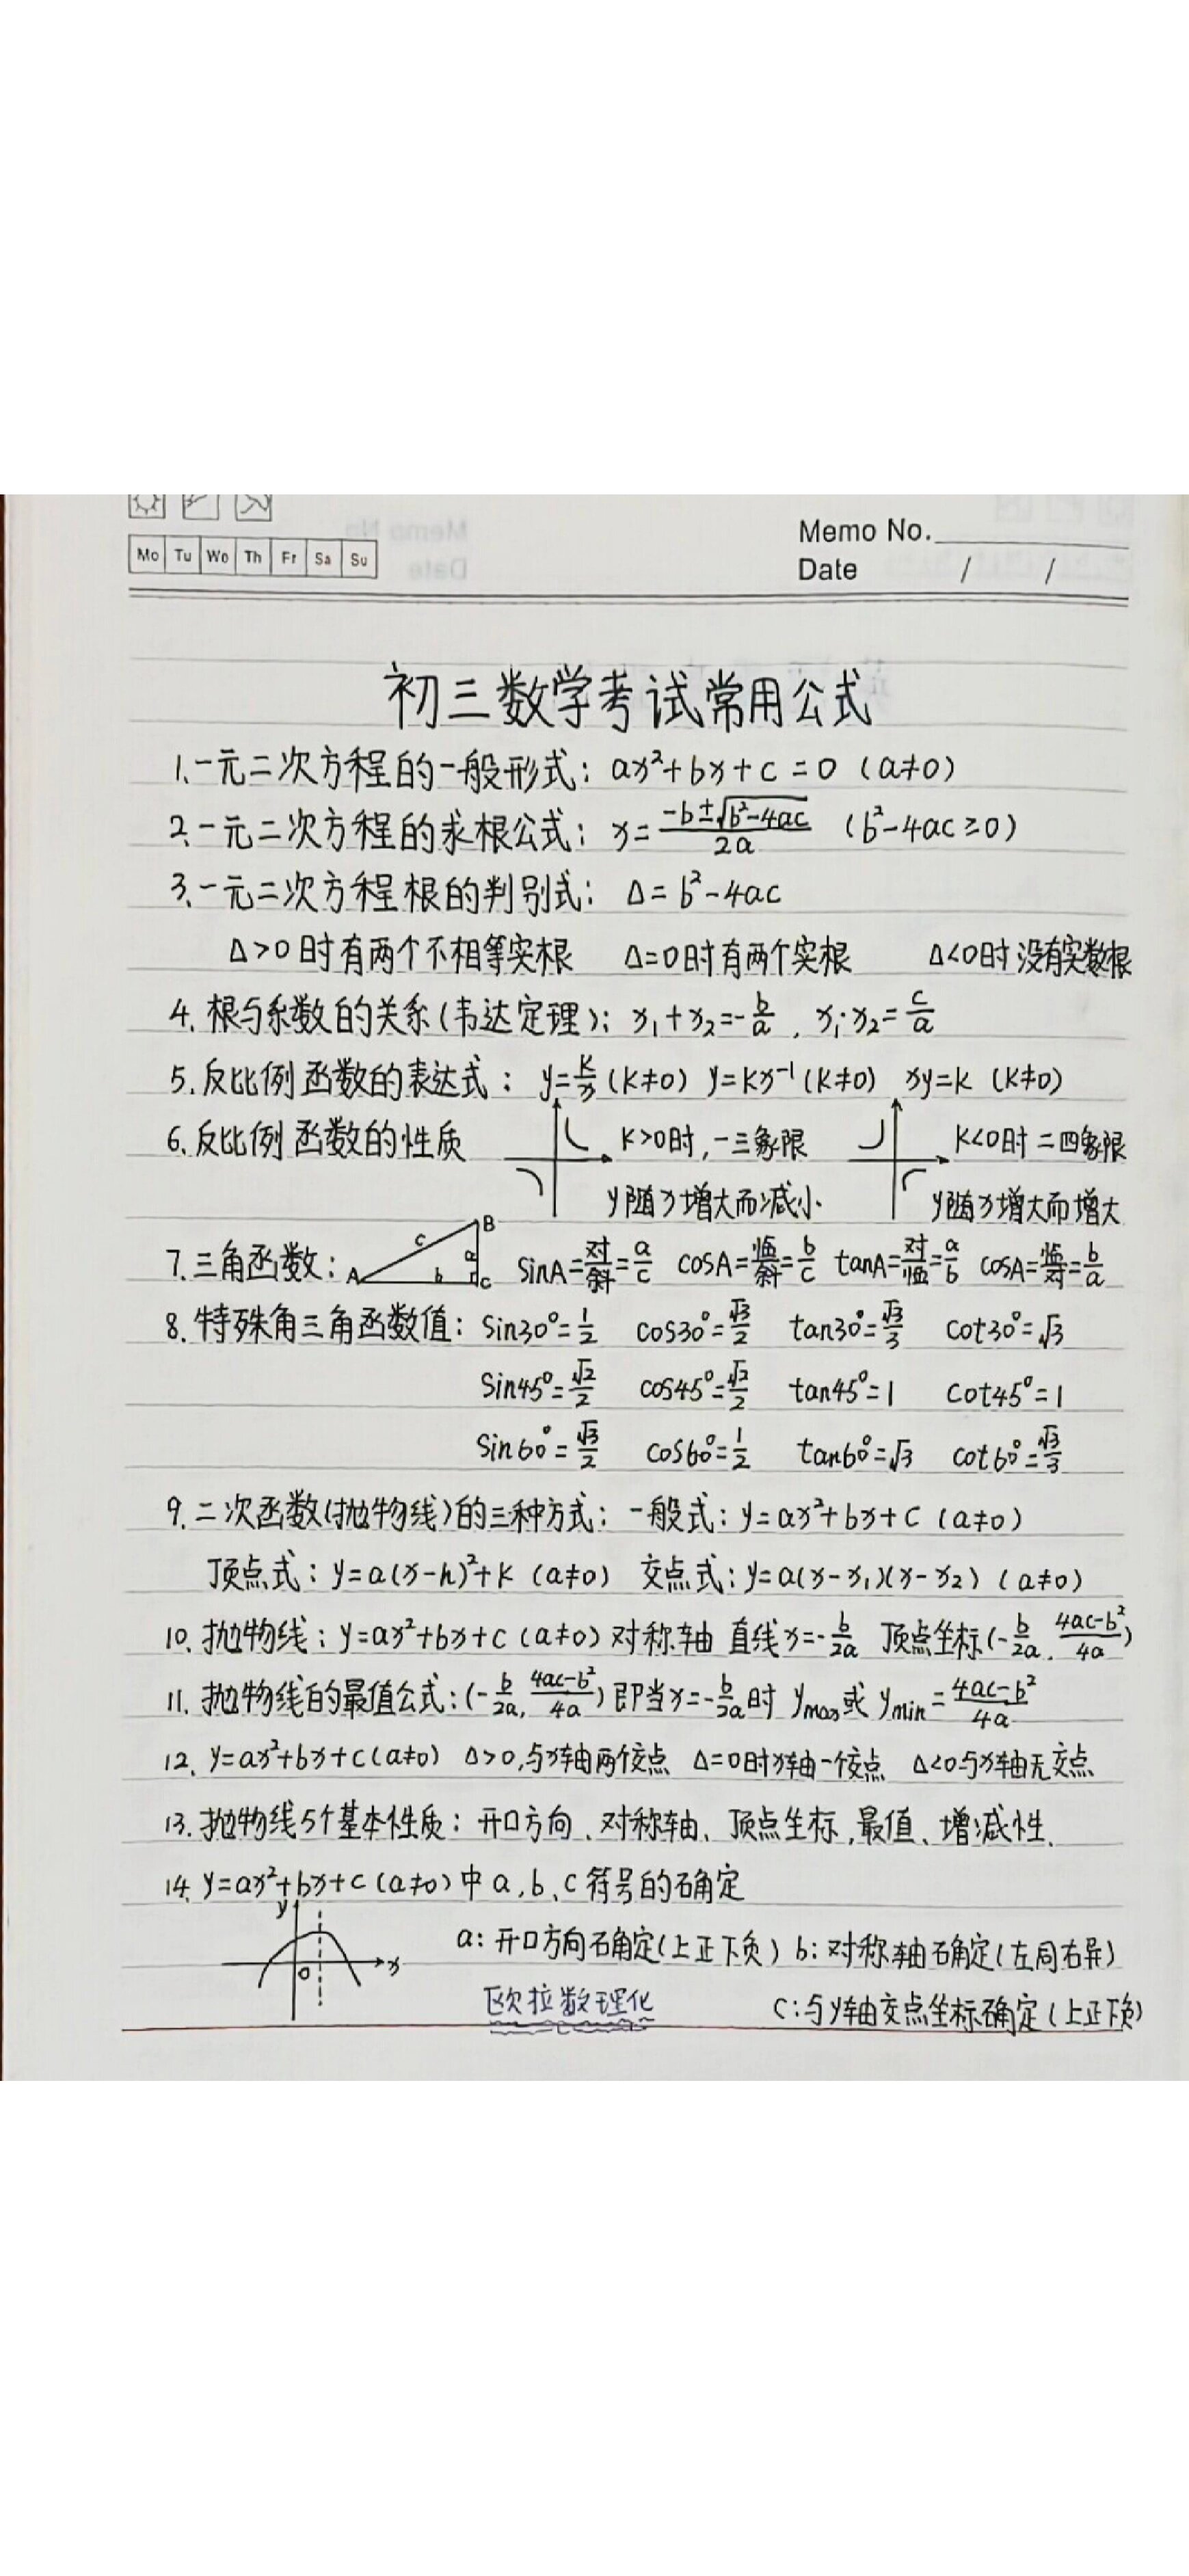 Mo Tu We Th Fr Sa Su
Memo No.
Date / /
初三数学考试常用公式
1.一元二次方程的一般形式: ax²+bx+c=0 (a≠0)
2.一元二次方程的求根公式: x=(-b±√(b²-4ac))/2a (b²-4ac≥0)
3.一元二次方程根的判别式: Δ=b²-4ac
Δ>0时有两个不相等实根 Δ=0时有两个实根 Δ<0时没有实数根
4.根与系数的关系(韦达定理): x₁+x₂=-b/a, x₁·x₂=c/a
5.反比例函数的表达式: y=k/x (k≠0) y=kx⁻¹(k≠0) xy=k (k≠0)
6.反比例函数的性质 k>0时,一三象限 k<0时二四象限
y随x增大而减小. y随x增大而增大
7.三角函数: A B C a b c sinA=对/斜=a/c cosA=临/斜=b/c tanA=对/临=a/b cosA=临/对=b/a
8.特殊角三角函数值: Sin30°=1/2 cos30°=√3/2 tan30°=√3/3 cot30°=√3
Sin45°=√2/2 cos45°=√2/2 tan45°=1 cot45°=1
Sin60°=√3/2 cos60°=1/2 tan60°=√3 cot60°=√3/3
9.二次函数(抛物线)的三种方式: 一般式: y=ax²+bx+c (a≠0)
顶点式: y=a(x-h)²+k (a≠0) 交点式: y=a(x-x₁)(x-x₂) (a≠0)
10.抛物线: y=ax²+bx+c (a≠0) 对称轴 直线x=-b/2a 顶点坐标(-b/2a, (4ac-b²)/4a)
11.抛物线的最值公式:(-b/2a, (4ac-b²)/4a) 即当x=-b/2a时 ymax或ymin=(4ac-b²)/4a
12. y=ax²+bx+c(a≠0) Δ>0,与x轴两个交点 Δ=0时x轴一个交点 Δ<0与x轴无交点
13.抛物线5个基本性质: 开口方向、对称轴、顶点坐标,最值、增减性.
14. y=ax²+bx+c (a≠0)中a,b、c符号的确定
y O x
a: 开口方向确定(上正下负) b: 对称轴确定(左同右异)
欧拉数理化 C:与y轴交点坐标确定(上正下负)